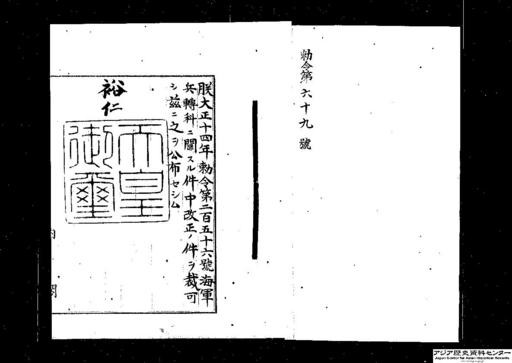 勅令第六十九號
朕大正十四年勅令第二百五十六號海軍
兵轉科ニ關スル件中改正ノ件ヲ裁可
シ茲ニ之ヲ公布セシム
裕仁
天皇
御璽
内
閣
アジア歴史資料センター
Japan Center for Asian Historical Records